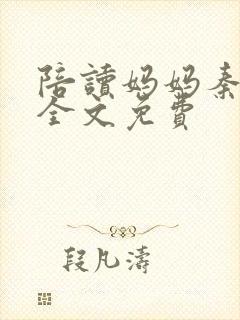 陪讀妈妈秦
全文免費
段凡濤